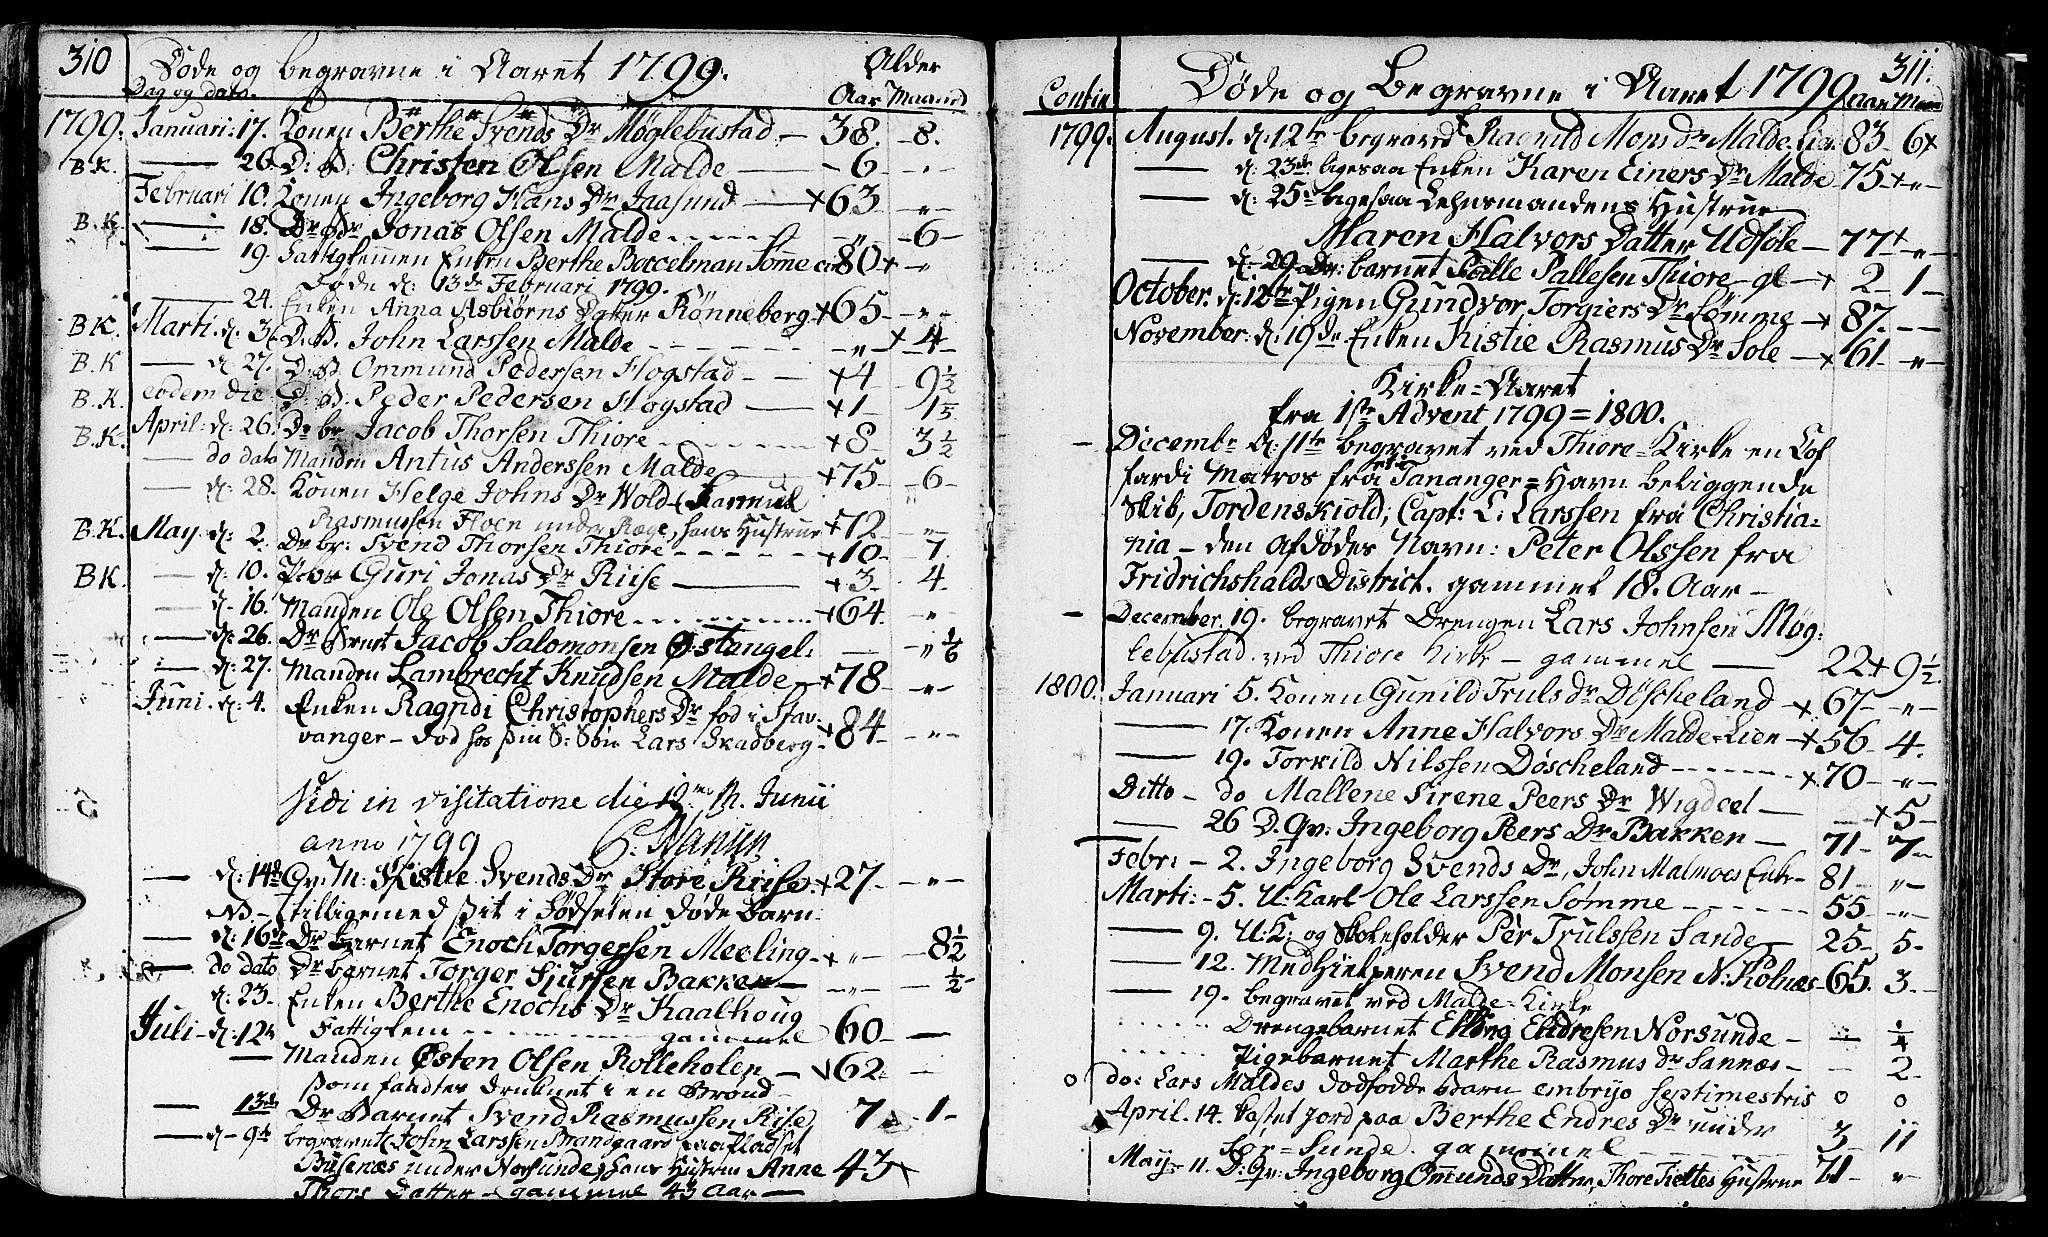 310
Døde og begravne i Aaret 1799. Alder
Dag og dato. Aar Maaned
1799. Januari: 17. Konen Berthe Svends Dr Møglebustad — 38. 8.
B.K. — 26. D: B: Christen Olsen Malde — 6 —
Februari 10. Konen Ingeborg Hans Dr Jaasund — + 63 — „
B.K. — 18. Dr Br Jonas Olsen Malde — „ — 6 —
19. Fattiglemmen Enken Berthe Somme 80 + — „
Døde d: 13de Februari 1799.
— 24. Enken Anna Asbiørns Datter Rønneberg + 65 — „
B.K. Marti d: 3. D. B. John Larssen Malde — „ + 4 —
B.K — d: 27. D. B. Ommund Pedersen Hogstad — + 4 — 9 1/2
B.K. eodem die D: B. Peder Pedersen Hogstad — + 1 — 1/5
B.K. April: d: 26. Dr br Jacob Thorsen Thiore — + 8 — 3 1/2
— do dato Manden Antus Anderssen Malde — + 75 — 6 —
— d: 28. Konen Helge Johns Dr Wold
Rasmussen under Ræge, hans Hustrue + 72 — „
B.K. May. d: 2. Dr br: Svend Thorsen Thiore — + 10 — 7.
B K. — d: 10. Guri Jonas Dr Riise — + 3 — 4.
— d: 16. Manden Ole Olsen Thiore — + 64. „
— d: 26. Dr Jacob Salomonsen Østangel: — „ 1/6
— d: 27. Manden Lambrecht Knudsen Malde — + 78 — „
Juni. d: 4. Enken Ragndi Christophers Dr fød i Stav:
vanger — død hos sin S: Søn Lars Skadberg + 84 — „
Vidi in visitatione die 12mo M. Junii
anno 1799 P. Hansen
— d: 14de Qv: M: Svends Dr Store Riise. + 27 — „
NB. — tilligemed sit i Fødselen døde Barn
— d: 16de Dr Barnet Enoch Torgersen Meeling — + „ — 8 1/2
— do dato Dr barnet Torger Sjursen Bakken — „ — 1/2
d: 23. Enken Berthe Enochs Dr Kaalhoug
Fattiglem — gammel 60 —
Juli — d: 12te
— Manden Østen Olsen Rolleholen — + 62 —
som fandtes druknet i en Brønd —
— 13de Dr Barnet Svend Rasmussen Riise 7 — 1 —
— d — 9de begravet John Larssen
Busenæs under Norsunde, hans Hustrue Anne 43 +
Thors Datter — gammel 43 Aar —
311.
Contin Døde og Begravne i Aaret 1799 Aar Maan
1799. August. d: 12te begraved Ragnild Mons dr Malde-Lien 83 6 +
— d: 23de ligesaa Enken Karen Einers Dr Malde 75 + „
— d: 25de ligesaa Lehnsmandens Hustrue
Maren Halvors Datter Udsole — 77 + „
— d: 29. Dr: barnet Palle Pallesen Thiore gl — + 2 — 1 —
October. d: 12te Pigen Gundvor Torgiers Dr Sømme — + 87. —
November: d: 19de Enken Kistie Rasmus Dr Sole — + 61 — „
Kirke=Aaret
fra 1ste Advent 1799=1800.
— Decembr d: 11te begravet ved Thiore=Kirke en Cof
fardi Matros fra det i Tananger=Havn beliggende
Skib, Tordenskiold; Capt: L: Larssen fra Christia=
nia — den Afdødes Navn: Peter Olssen fra
Fridrichshalds District. gammel 18. Aar —
— December. 19. begravet Drengen Lars Johnsen Møg:
lebustad ved Thiore Kirke — gammel — 22 + 9 1/2.
1800. Januari 5. Konen Gunild Truls dr Døscheland — + 67 — „
— 17. Konen Anne Halvors Dr Malde=Lien — + 56 4.
— 19. Torkild Nilssen Døscheland — + 70 — „
Ditto — do Mallene Sirene Peers Dr Wigdeel — + 5 —
— 26 D. Qv: Ingeborg Peers Dr Bakken — 71 — 7 —
Febr: — 2. Ingeborg Svends Dr, John Malmoes Enke — 81 — „
Marti: — 5. U: Karl Ole Larssen Sømme — 55 — „
— 9. U: K: og Skoleholder Pér Trulssen Sande — 25 — 5 —
— 12. Medhielperen Svend Monsen N: Kolnæs — 65. 3 —
— 19. begravet ved Malde=Kirke
Drengebarnet Elling Endresen Norsunde — — 1/4
Pigebarnet Marthe Rasmus dr Sannæs — — 2 —
o do: Lars Maldes dødfødde Barn embryo septimestris o o
April. 14. kastet jord paa Berthe Endres Dr under
Sør=Sunde. gammel — 3 — 11
Maij — 11. D: Qv: Ingeborg Ommunds Datter, Thore Hustrue 71 — „